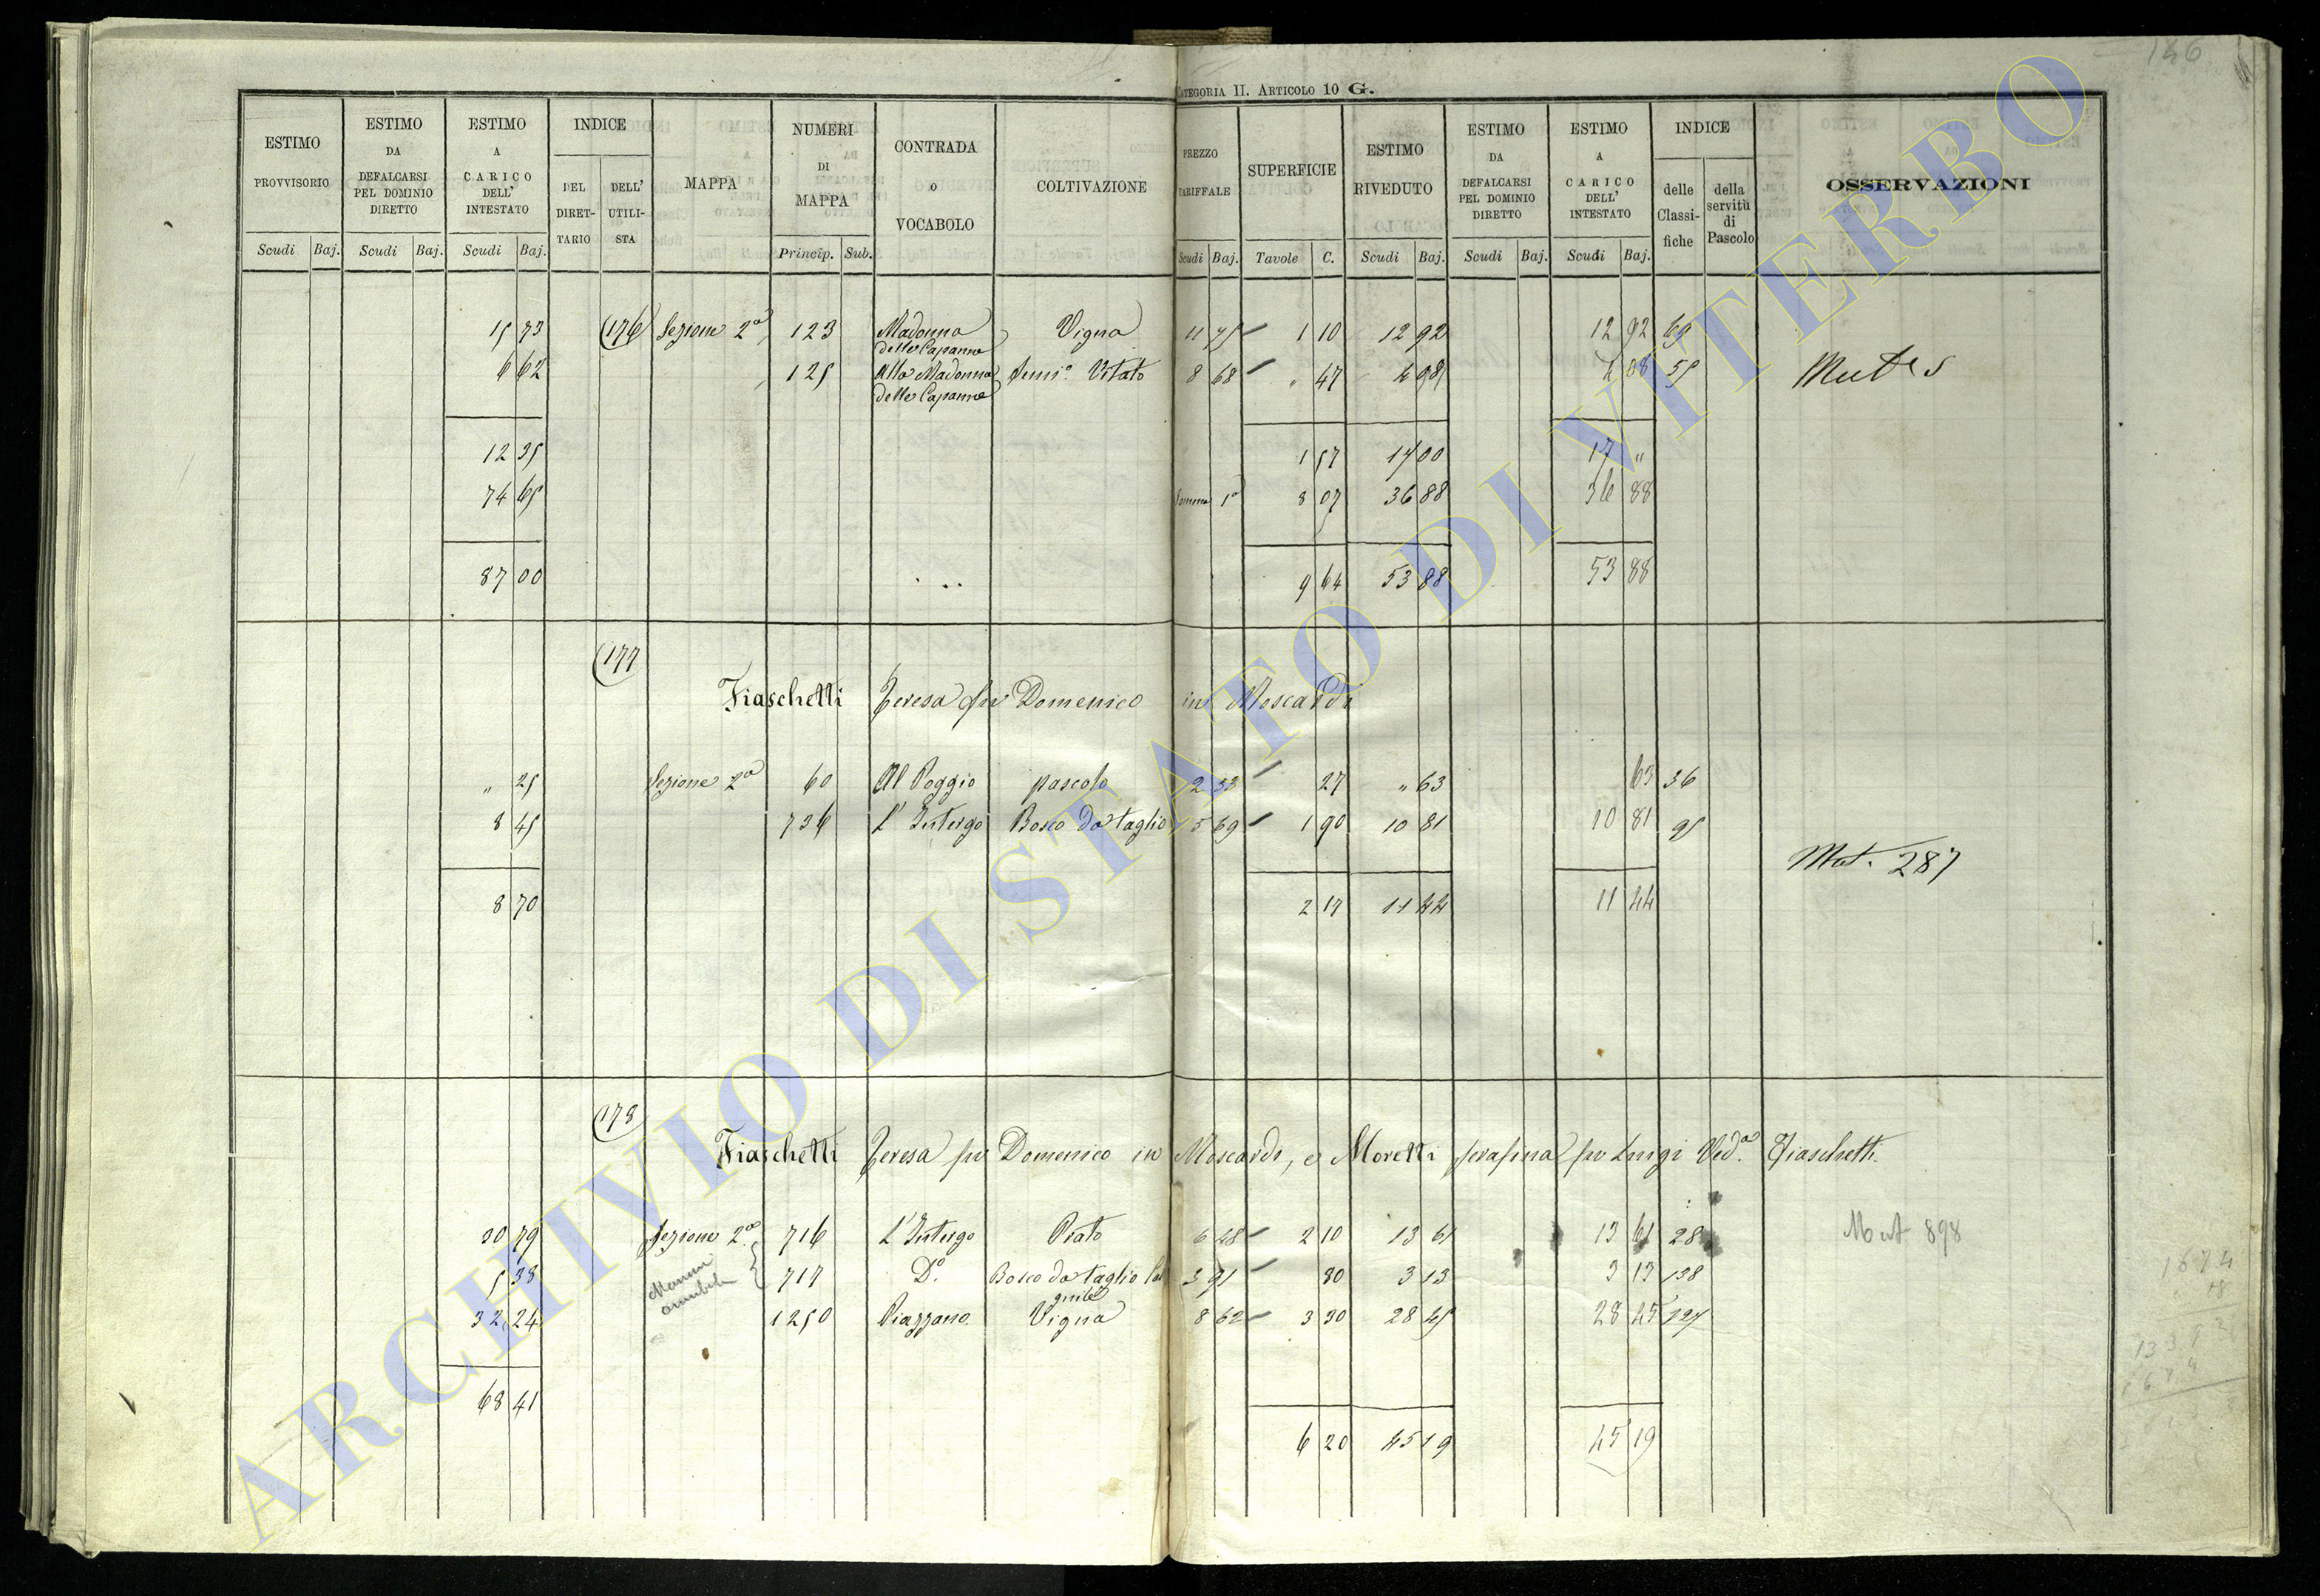 146
CATEGORIA II. ARTICOLO 10 G.
ESTIMO PROVVISORIO
ESTIMO DA DEFALCARSI PEL DOMINIO DIRETTO
ESTIMO A CARICO DELL' INTESTATO
INDICE
DEL DIRET-TARIO
DELL' UTILI-STA
MAPPA
NUMERI DI MAPPA
CONTRADA O VOCABOLO
COLTIVAZIONE
PREZZO TARIFFALE
SUPERFICIE
ESTIMO RIVEDUTO
ESTIMO DA DEFALCARSI PEL DOMINIO DIRETTO
ESTIMO A CARICO DELL' INTESTATO
INDICE
delle Classi-fiche
della servitù di Pascolo
OSSERVAZIONI
Scudi Baj. Scudi Baj. Scudi Baj. Princip. Sub. Scudi Baj. Tavole C. Scudi Baj. Scudi Baj. Scudi Baj.
73 176 Sezione 2a 123 Madonna delle Capanne Vigna 11 75 1 10 12 92 12 92 69
6 62 125 Alla Madonna delle Capanne Semi.o Vitato 8 68 " 47 4 08 4 08 55
12 35 1 57 17 00 17 "
74 65 Somma 1a 8 07 36 88 36 88
87 00 9 64 53 88 53 88
177
Fiaschetti Teresa fu Domenico in Moscardi
" 25 Sezione 2a 60 Al Poggio pascolo 2 33 27 " 63 63 36
8 45 736 L'Intergo Bosco da taglio 5 69 1 90 10 81 10 81 95
Mut. 287
8 70 2 17 11 44 11 44
178
Fiaschetti Teresa fu Domenico in Moscardi, e Moretti Serafina fu Luigi Ved.a Fiaschetti
30 79 Sezione 2a 716 L'Intergo Prato 6 48 2 10 13 61 13 61 28 Mut 898
5 38 717 D.o Bosco da taglio 3 91 80 3 13 3 13 138
32 24 1250 Piazzano Vigna 8 62 3 30 28 45 28 45
68 41
6 20 45 19 45 19
ARCHIVIO DI STATO DI VITERBO